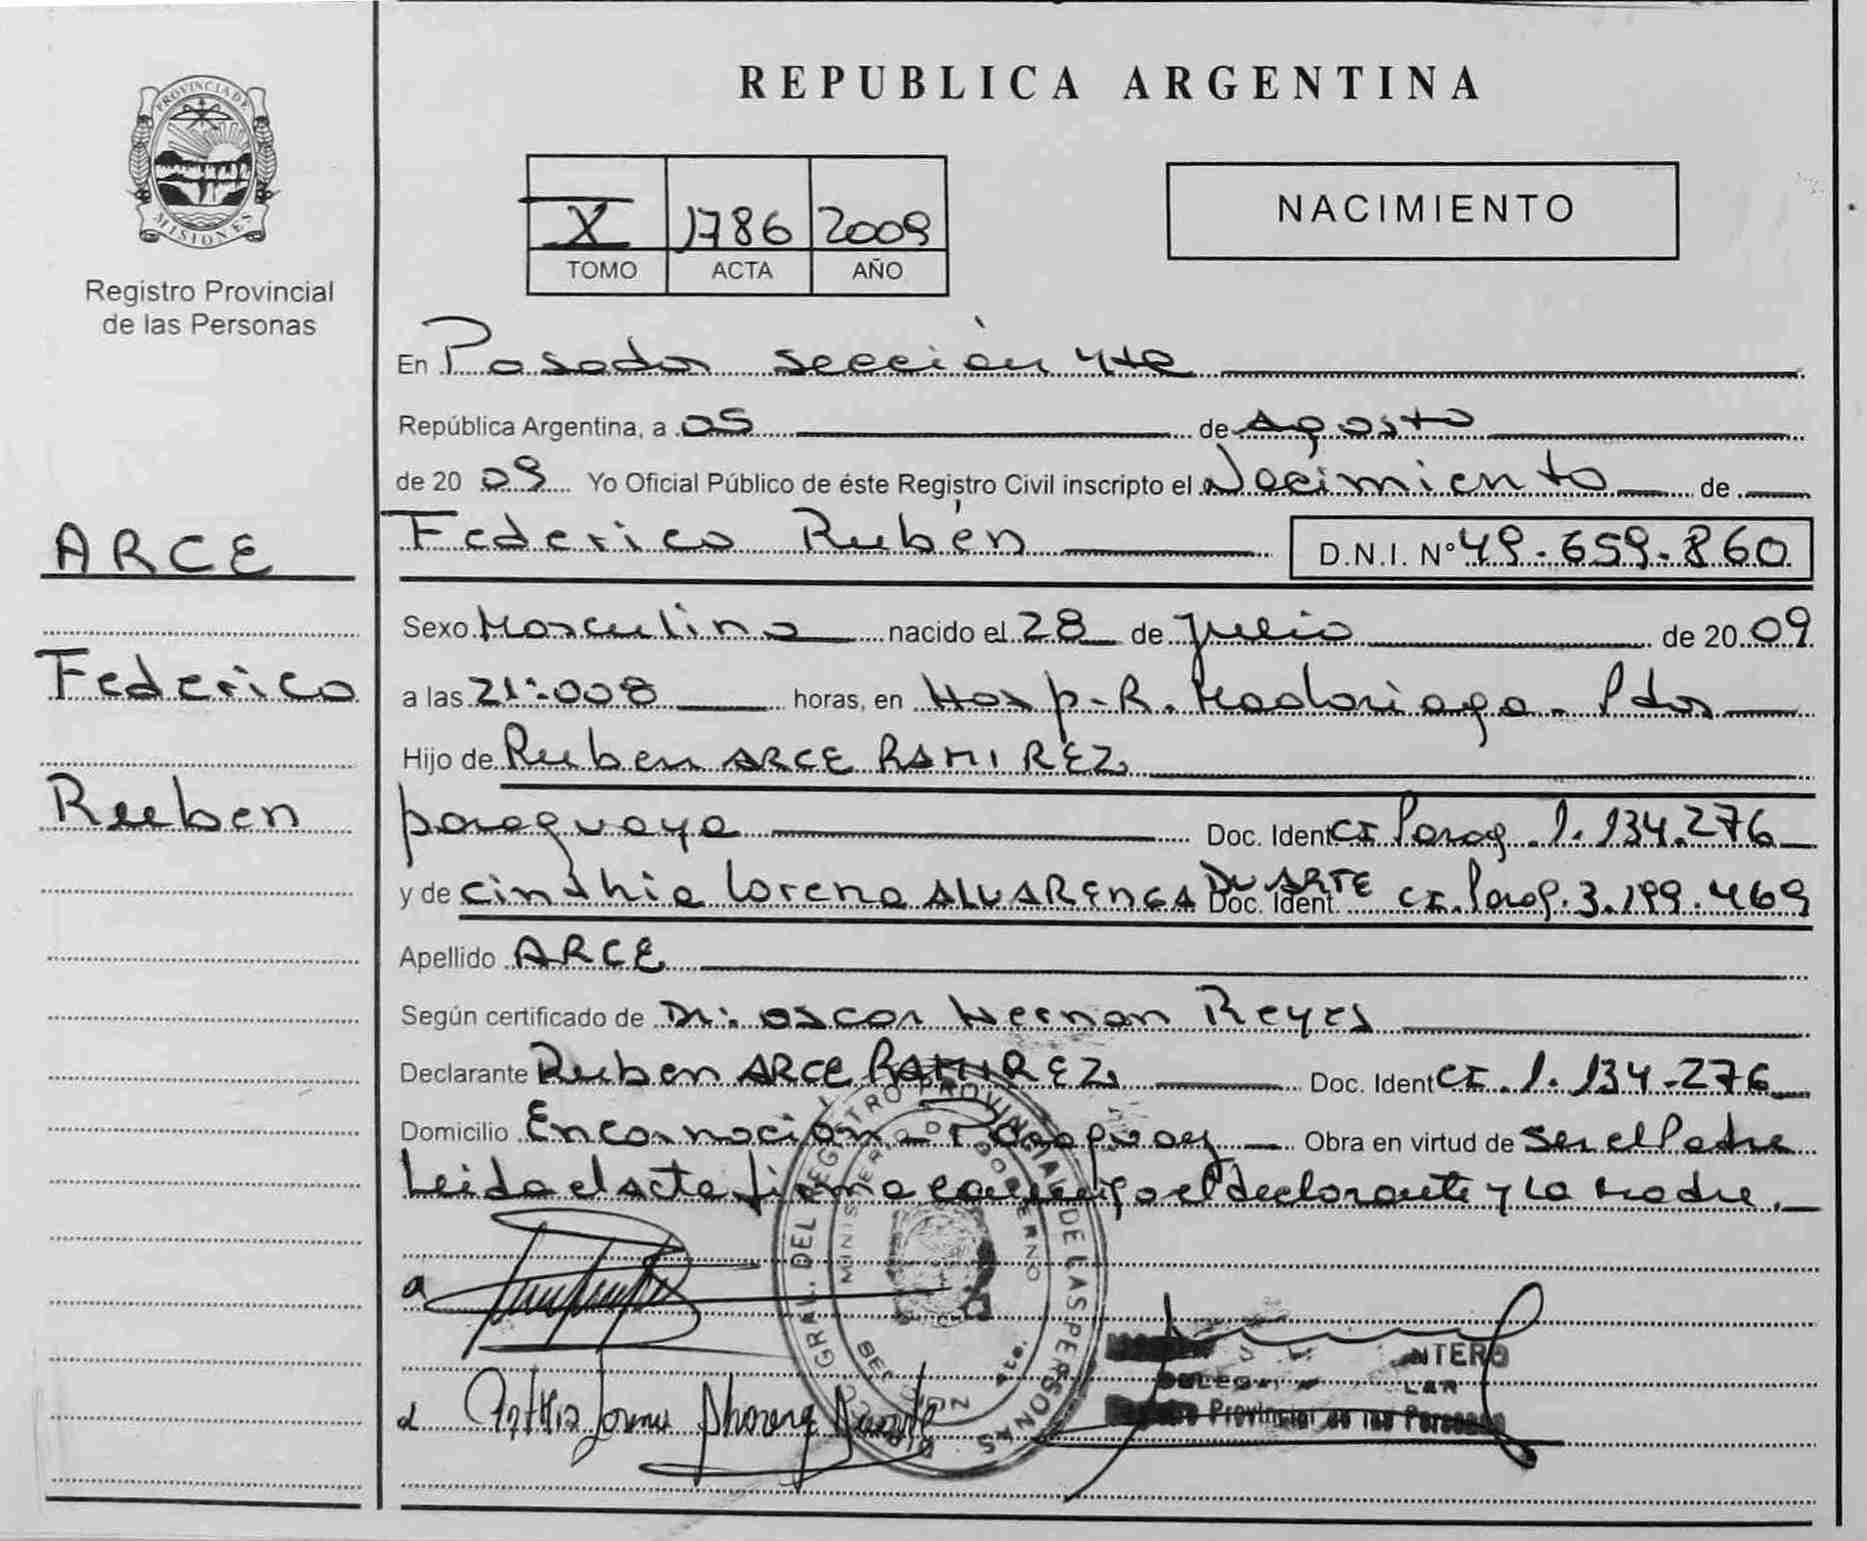 PROVINCIA DE
MISIONES
Registro Provincial
de las Personas
ARCE
Federico
Ruben
REPUBLICA ARGENTINA
X 1786 2009
TOMO ACTA AÑO
NACIMIENTO
En Posadas sección 4ta
República Argentina, a 05 de Agosto
de 20 09 Yo Oficial Público de éste Registro Civil inscripto el Nacimiento de
Federico Rubén D.N.I. Nº 49.659.860
Sexo Masculino nacido el 28 de julio de 20 09
a las 21:00 horas, en Hosp. R. Madariaga - Pdas
Hijo de Ruben ARCE RAMIREZ
paraguaya Doc. Ident CI Parag. 1.134.276
y de Cinthia Lorena ALVARENGA DUARTE Doc. Ident. CI. Parag. 3.199.469
Apellido ARCE
Según certificado de Dr. Oscar Hernan Reyes
Declarante Ruben ARCE RAMIREZ Doc. Ident CI. 1.134.276
Domicilio Encarnación - Paraguay Obra en virtud de ser el Padre
Leida el acta firma conmigo el declarante y la madre.
DIRECC. GRAL. DEL REGISTRO PROVINCIAL DE LAS PERSONAS
MINISTERIO DE GOBIERNO
Cinthia Lorena Alvarenga Duarte
Provincial de las Personas